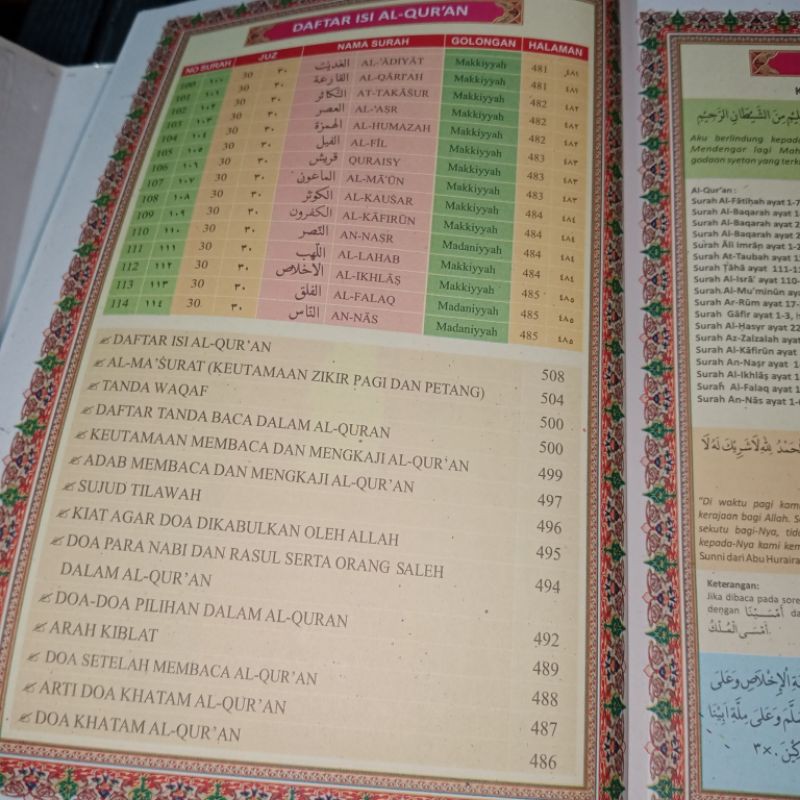 DAFTAR ISI AL-QUR'AN
NO SURAH JUZ NAMA SURAH GOLONGAN HALAMAN
100 ١٠٠ 30 ٣٠ العٰديٰت AL-'ĀDIYĀT Makkiyyah 481 ٤٨١
101 ١٠١ 30 ٣٠ القارعة AL-QĀRI'AH Makkiyyah 481 ٤٨١
102 ١٠٢ 30 ٣٠ التّكاثر AT-TAKĀŚUR Makkiyyah 482 ٤٨٢
103 ١٠٣ 30 ٣٠ العصر AL-'AṢR Makkiyyah 482 ٤٨٢
104 ١٠٤ 30 ٣٠ الهمزة AL-HUMAZAH Makkiyyah 482 ٤٨٢
105 ١٠٥ 30 ٣٠ الفيل AL-FĪL Makkiyyah 483 ٤٨٣
106 ١٠٦ 30 ٣٠ قريش QURAISY Makkiyyah 483 ٤٨٣
107 ١٠٧ 30 ٣٠ الماعون AL-MĀ'ŪN Makkiyyah 483 ٤٨٣
108 ١٠٨ 30 ٣٠ الكوثر AL-KAUŚAR Makkiyyah 484 ٤٨٤
109 ١٠٩ 30 ٣٠ الكٰفرون AL-KĀFIRŪN Makkiyyah 484 ٤٨٤
110 ١١٠ 30 ٣٠ النّصر AN-NAṢR Madaniyyah 484 ٤٨٤
111 ١١١ 30 ٣٠ اللّهب AL-LAHAB Makkiyyah 484 ٤٨٤
112 ١١٢ 30 ٣٠ الاخلاص AL-IKHLĀṢ Makkiyyah 485 ٤٨٥
113 ١١٣ 30 ٣٠ الفلق AL-FALAQ Madaniyyah 485 ٤٨٥
114 ١١٤ 30 ٣٠ النّاس AN-NĀS Madaniyyah 485 ٤٨٥
DAFTAR ISI AL-QUR'AN 508
AL-MA'ŚURAT (KEUTAMAAN ZIKIR PAGI DAN PETANG) 504
TANDA WAQAF 500
DAFTAR TANDA BACA DALAM AL-QURAN 500
KEUTAMAAN MEMBACA DAN MENGKAJI AL-QUR'AN 499
ADAB MEMBACA DAN MENGKAJI AL-QUR'AN 497
SUJUD TILAWAH 496
KIAT AGAR DOA DIKABULKAN OLEH ALLAH 495
DOA PARA NABI DAN RASUL SERTA ORANG SALEH
DALAM AL-QUR'AN 494
DOA-DOA PILIHAN DALAM AL-QURAN 492
ARAH KIBLAT 489
DOA SETELAH MEMBACA AL-QUR'AN 488
ARTI DOA KHATAM AL-QUR'AN 487
DOA KHATAM AL-QUR'AN 486
مِنَ الشَّيْطَانِ الرَّجِيْمِ
Aku berlindung kepada
Mendengar lagi
godaan syetan yang
Al-Qur'an :
Surah Al-Fātiḥah ayat 1-7
Surah Al-Baqarah ayat 1
Surah Al-Baqarah ayat 2
Surah Al-Baqarah ayat 2
Surah Āli Imrān ayat 1-2
Surah At-Taubah ayat 1
Surah Ṭāhā ayat 111-11
Surah Al-Isrā' ayat 110-
Surah Al-Mu'minūn aya
Surah Ar-Rūm ayat 17-
Surah Gāfir ayat 1-3,
Surah Al-Ḥasyr ayat 22
Surah Az-Zalzalah ayat
Surah Al-Kāfirūn ayat
Surah An-Naṣr ayat 1
Surah Al-Ikhlāṣ ayat
Surah Al Falaq ayat 1
Surah An-Nās ayat 1-6
لِلّٰهِ لَا شَرِيْكَ لَهُ لَا
"Di waktu pagi kam
kerajaan bagi Allah. S
sekutu bagi-Nya, tida
kepada-Nya kami kem
Sunni dari Abu Huraira
Keterangan:
Jika dibaca pada sore
dengan اَمْسَيْنَا da
اَمْسَى الْمُلْكُ
الْاِخْلَاصِ وَعَلٰى
وَعَلٰى مِلَّةِ اَبِيْنَا
٣×